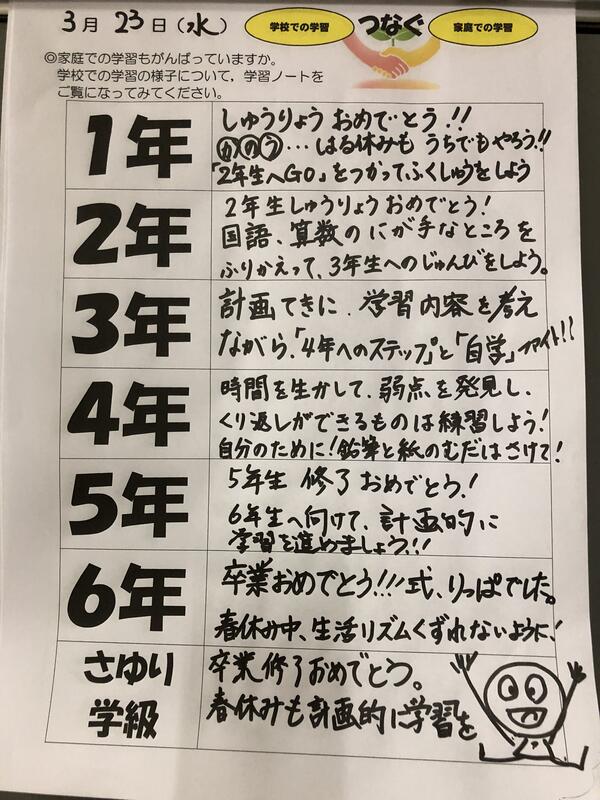 3月 23日（水）
学校での学習
つなぐ
家庭での学習
◎家庭での学習もがんばっていますか。
学校での学習の様子について，学習ノートを
ご覧になってみてください。
1年
しゅうりょう おめでとう!!
かのう…はる休みも うちでもやろう!!
「2年生へGO」をつかってふくしゅうをしよう
2年
2年生しゅうりょう おめでとう!
国語、算数のにが手なところを
ふりかえって、3年生へのじゅんびをしよう。
3年
計画てきに、学習内容を考え
ながら、「4年へのステップ」と「自学」ファイト!!
4年
時間を生かして、弱点を発見し、
くり返しができるものは練習しよう!
自分のために!鉛筆と紙のむだはさけて!
5年
5年生 修了 おめでとう!
6年生へ向けて、計画的に
学習を進めましょう!!
6年
卒業おめでとう!!! 式、りっぱでした。
春休み中、生活リズムくずれないように!
さゆり
学級
卒業修了おめでとう。
春休みも計画的に学習を